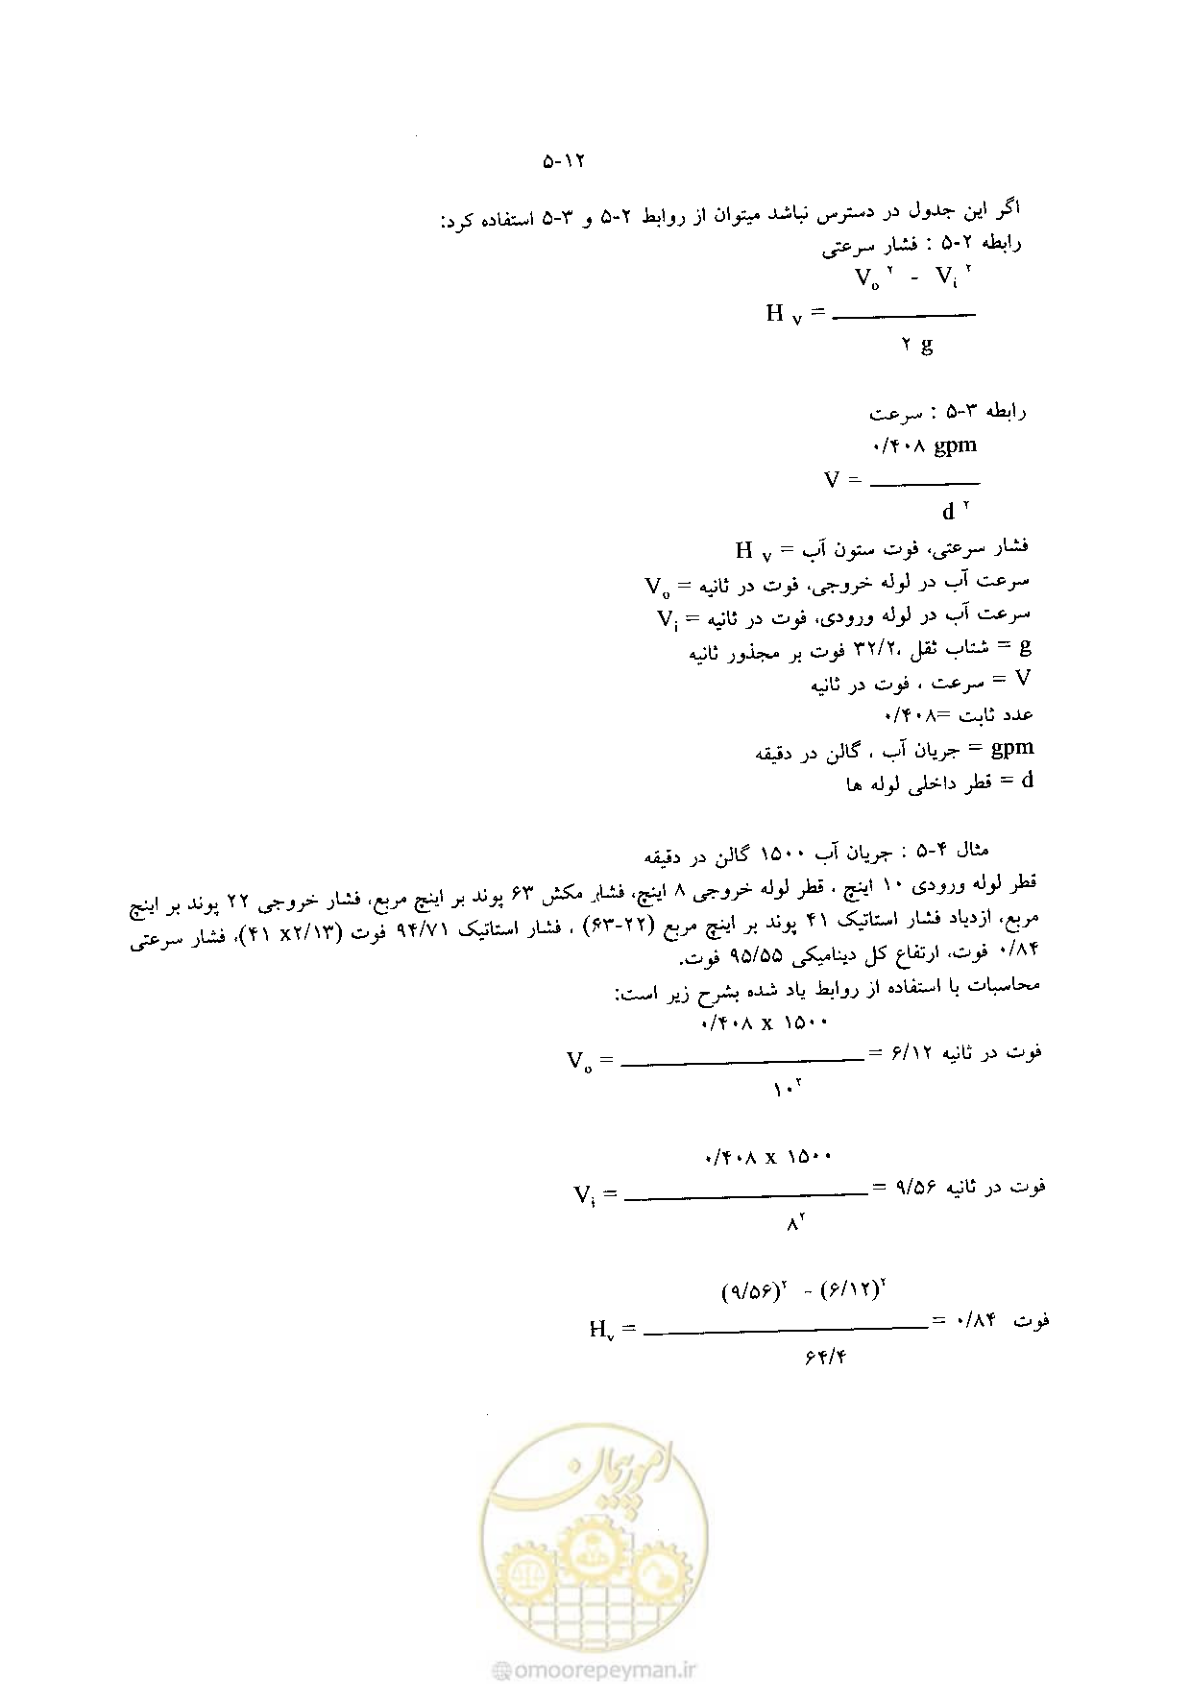 ۵-۱۲
اگر این جدول در دسترس نباشد میتوان از روابط ۵-۲ و ۵-۳ استفاده کرد:
رابطه ۵-۲ : فشار سرعتی
V₀ ² - Vᵢ ²
H ᵥ =
۲ g
رابطه ۵-۳ : سرعت
۰/۴۰۸ gpm
V =
d ²
فشار سرعتی، فوت ستون آب = H ᵥ
سرعت آب در لوله خروجی، فوت در ثانیه = V₀
سرعت آب در لوله ورودی، فوت در ثانیه = Vᵢ
g = شتاب ثقل ،۳۲/۲ فوت بر مجذور ثانیه
V = سرعت ، فوت در ثانیه
عدد ثابت =۰/۴۰۸
gpm = جریان آب ، گالن در دقیقه
d = قطر داخلی لوله ها
مثال ۵-۴ : جریان آب ۱۵۰۰ گالن در دقیقه
قطر لوله ورودی ۱۰ اینچ ، قطر لوله خروجی ۸ اینچ، فشار مکش ۶۳ پوند بر اینچ مربع، فشار خروجی ۲۲ پوند بر اینچ
مربع، ازدیاد فشار استاتیک ۴۱ پوند بر اینچ مربع (۲۲-۶۳) ، فشار استاتیک ۹۴/۷۱ فوت (۲/۱۳x ۴۱)، فشار سرعتی
۰/۸۴ فوت، ارتفاع کل دینامیکی ۹۵/۵۵ فوت.
محاسبات با استفاده از روابط یاد شده بشرح زیر است:
۰/۴۰۸ x ۱۵۰۰
V₀ = = ۶/۱۲ فوت در ثانیه
۱۰²
۰/۴۰۸ x ۱۵۰۰
Vᵢ = = ۹/۵۶ فوت در ثانیه
۸²
(۹/۵۶)² - (۶/۱۲)²
Hᵥ = = ۰/۸۴ فوت
۶۴/۴
امور پیمان
@omoorepeyman.ir